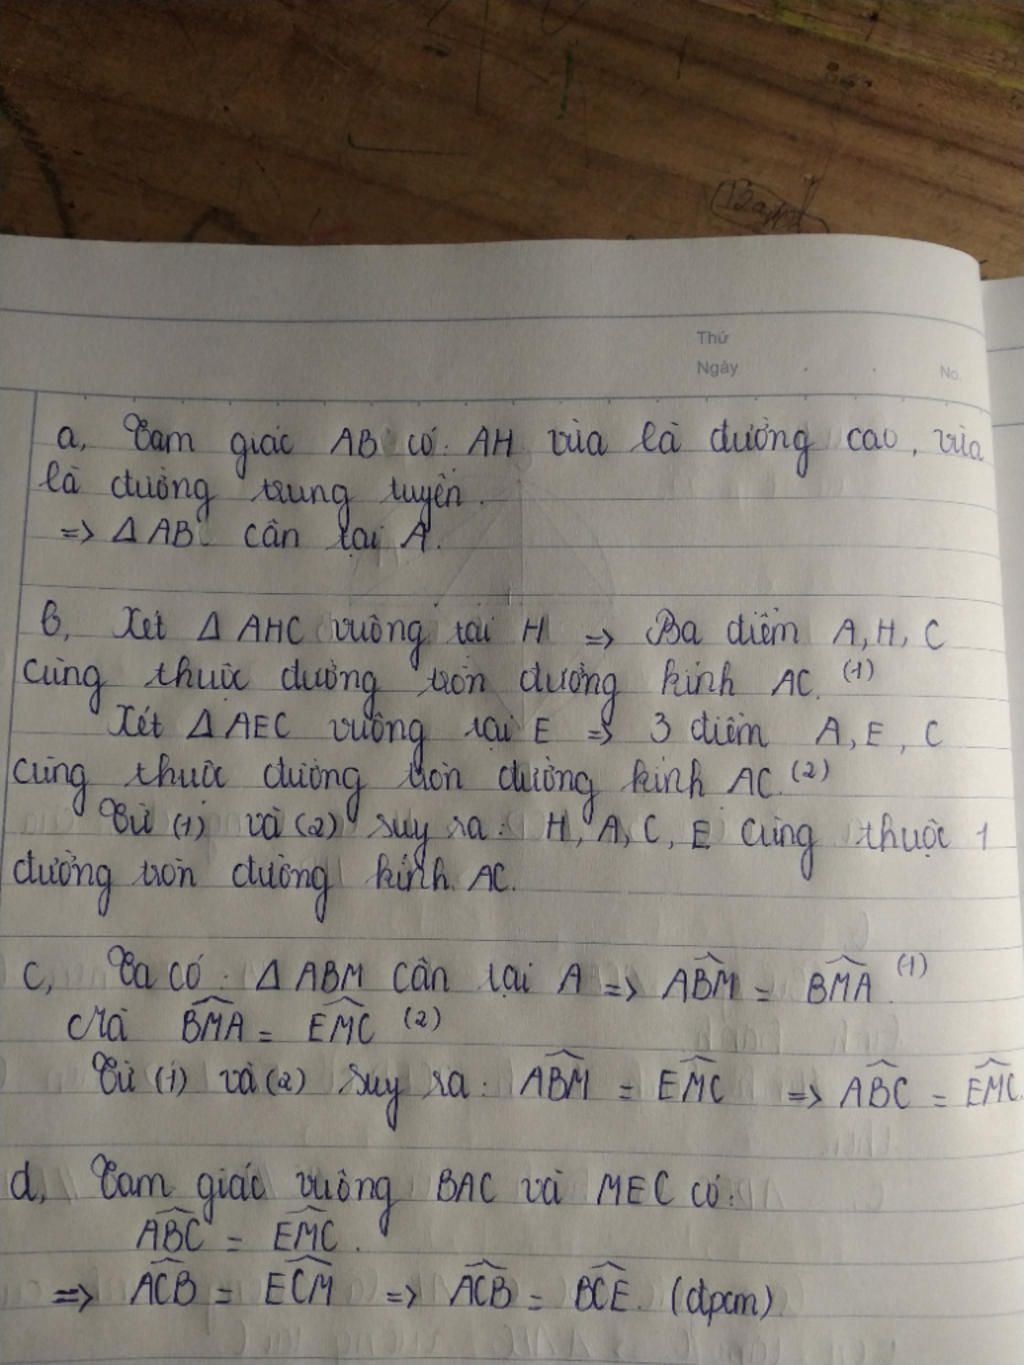 Thứ
Ngày
No.
a, Tam giác AB có: AH vừa là đường cao, vừa
là đường trung tuyến.
=> Δ AB cân tại A.
b, Xét Δ AHC vuông tại H => Ba điểm A, H, C
cùng thuộc đường tròn đường kính AC. (1)
Xét Δ AEC vuông tại E => 3 điểm A, E, C
cùng thuộc đường tròn đường kính AC. (2)
Từ (1) và (2) suy ra: H, A, C, E cùng thuộc 1
đường tròn đường kính AC.
c, Ta có: Δ ABM cân tại A => \widehat{ABM} = \widehat{BMA}. (1)
Mà \widehat{BMA} = \widehat{EMC} (2)
Từ (1) và (2) suy ra: \widehat{ABM} = \widehat{EMC} => \widehat{ABC} = \widehat{EMC}.
d, Tam giác vuông BAC và MEC có:
\widehat{ABC} = \widehat{EMC}.
=> \widehat{ACB} = \widehat{ECM} => \widehat{ACB} = \widehat{BCE}. (đpcm)